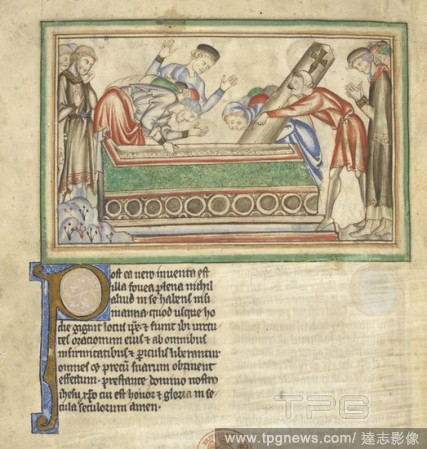 Post ea vero inventa est
illa fovea plena nichil
aliud in se habens nisi
manna quod usque ho
die gignit locus ipẽ ⁊ fiunt ibi virtu
tes oracionum eius ⁊ ab omnibus
infirmitatibus ⁊ periculis liberantur
omnes ⁊ precum suarum obtinent
effectum. prestante domino nostro
ihesu xp̃o cui est honor ⁊ gloria in se
cula seculorum amen.
TPG
www.tpgnews.com / 達志影像